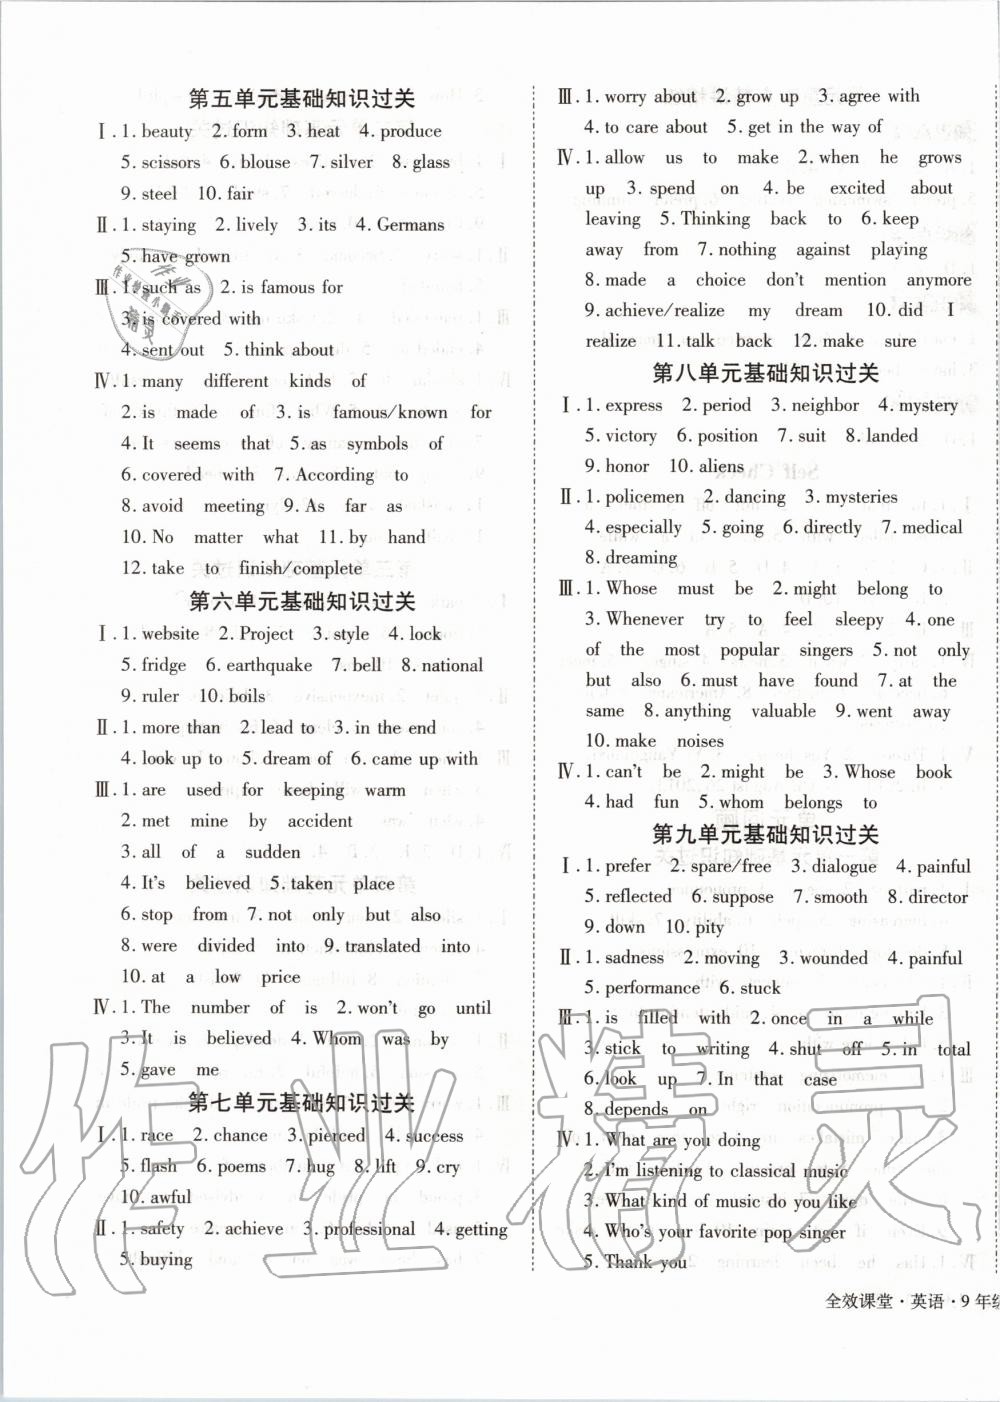 第五单元基础知识过关
Ⅰ. 1. beauty 2. form 3. heat 4. produce
5. scissors 6. blouse 7. silver 8. glass
9. steel 10. fair
Ⅱ. 1. staying 2. lively 3. its 4. Germans
5. have grown
Ⅲ. 1. such as 2. is famous for
3. is covered with
4. sent out 5. think about
Ⅳ. 1. many different kinds of
2. is made of 3. is famous/known for
4. It seems that 5. as symbols of
6. covered with 7. According to
8. avoid meeting 9. As far as
10. No matter what 11. by hand
12. take to finish/complete
第六单元基础知识过关
Ⅰ. 1. website 2. Project 3. style 4. lock
5. fridge 6. earthquake 7. bell 8. national
9. ruler 10. boils
Ⅱ. 1. more than 2. lead to 3. in the end
4. look up to 5. dream of 6. came up with
Ⅲ. 1. are used for keeping warm
2. met mine by accident
3. all of a sudden
4. It's believed 5. taken place
6. stop from 7. not only but also
8. were divided into 9. translated into
10. at a low price
Ⅳ. 1. The number of is 2. won't go until
3. It is believed 4. Whom was by
5. gave me
第七单元基础知识过关
Ⅰ. 1. race 2. chance 3. pierced 4. success
5. flash 6. poems 7. hug 8. lift 9. cry
10. awful
Ⅱ. 1. safety 2. achieve 3. professional 4. getting
5. buying
Ⅲ. 1. worry about 2. grow up 3. agree with
4. to care about 5. get in the way of
Ⅳ. 1. allow us to make 2. when he grows
up 3. spend on 4. be excited about
leaving 5. Thinking back to 6. keep
away from 7. nothing against playing
8. made a choice don't mention anymore
9. achieve/realize my dream 10. did I
realize 11. talk back 12. make sure
第八单元基础知识过关
Ⅰ. 1. express 2. period 3. neighbor 4. mystery
5. victory 6. position 7. suit 8. landed
9. honor 10. aliens
Ⅱ. 1. policemen 2. dancing 3. mysteries
4. especially 5. going 6. directly 7. medical
8. dreaming
Ⅲ. 1. Whose must be 2. might belong to
3. Whenever try to feel sleepy 4. one
of the most popular singers 5. not only
but also 6. must have found 7. at the
same 8. anything valuable 9. went away
10. make noises
Ⅳ. 1. can't be 2. might be 3. Whose book
4. had fun 5. whom belongs to
第九单元基础知识过关
Ⅰ. 1. prefer 2. spare/free 3. dialogue 4. painful
5. reflected 6. suppose 7. smooth 8. director
9. down 10. pity
Ⅱ. 1. sadness 2. moving 3. wounded 4. painful
5. performance 6. stuck
Ⅲ. 1. is filled with 2. once in a while
3. stick to writing 4. shut off 5. in total
6. look up 7. In that case
8. depends on
Ⅳ. 1. What are you doing
2. I'm listening to classical music
3. What kind of music do you like
4. Who's your favorite pop singer
5. Thank you
全效课堂·英语·9年级
作业精灵